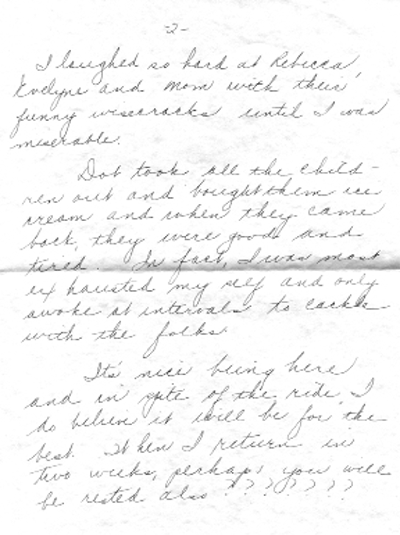 -2-
I laughed so hard at Rebecca,
Evelyne and Mom with their
funny wisecracks until I was
miserable.
Dot took all the child-
ren out and bought them ice
cream and when they came
back, they were good and
tired. In fact, I was most
exhausted my self and only
awoke at intervals to cackle
with the folks.
It's nice being here
and in spite of the ride, I
do believe it will be for the
best. When I return in
two weeks, perhaps you will
be rested also ????????